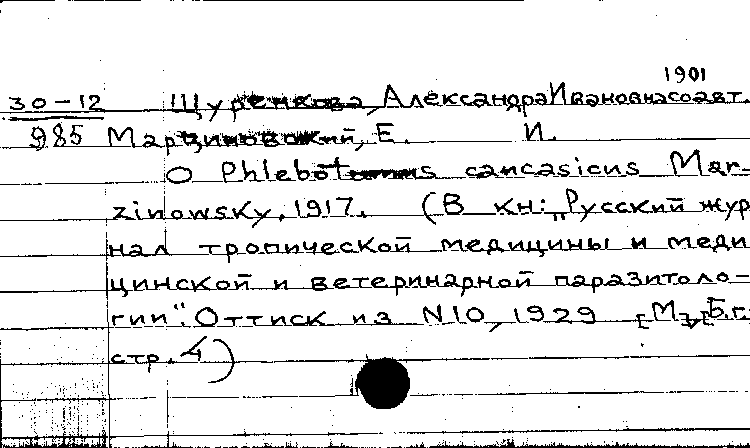 1901
30-12 Щуренкова, Александра Ивановна соавт.
985 Марциновский, Е. И.
О Phlebotomus caucasicus Mar-
zinowsky, 1917. (В кн: „Русский жур
нал тропической медицины и меди
цинской и ветеринарной паразитоло-
гии". Оттиск из N10, 1929 [М], [Б.г.
стр. 4)